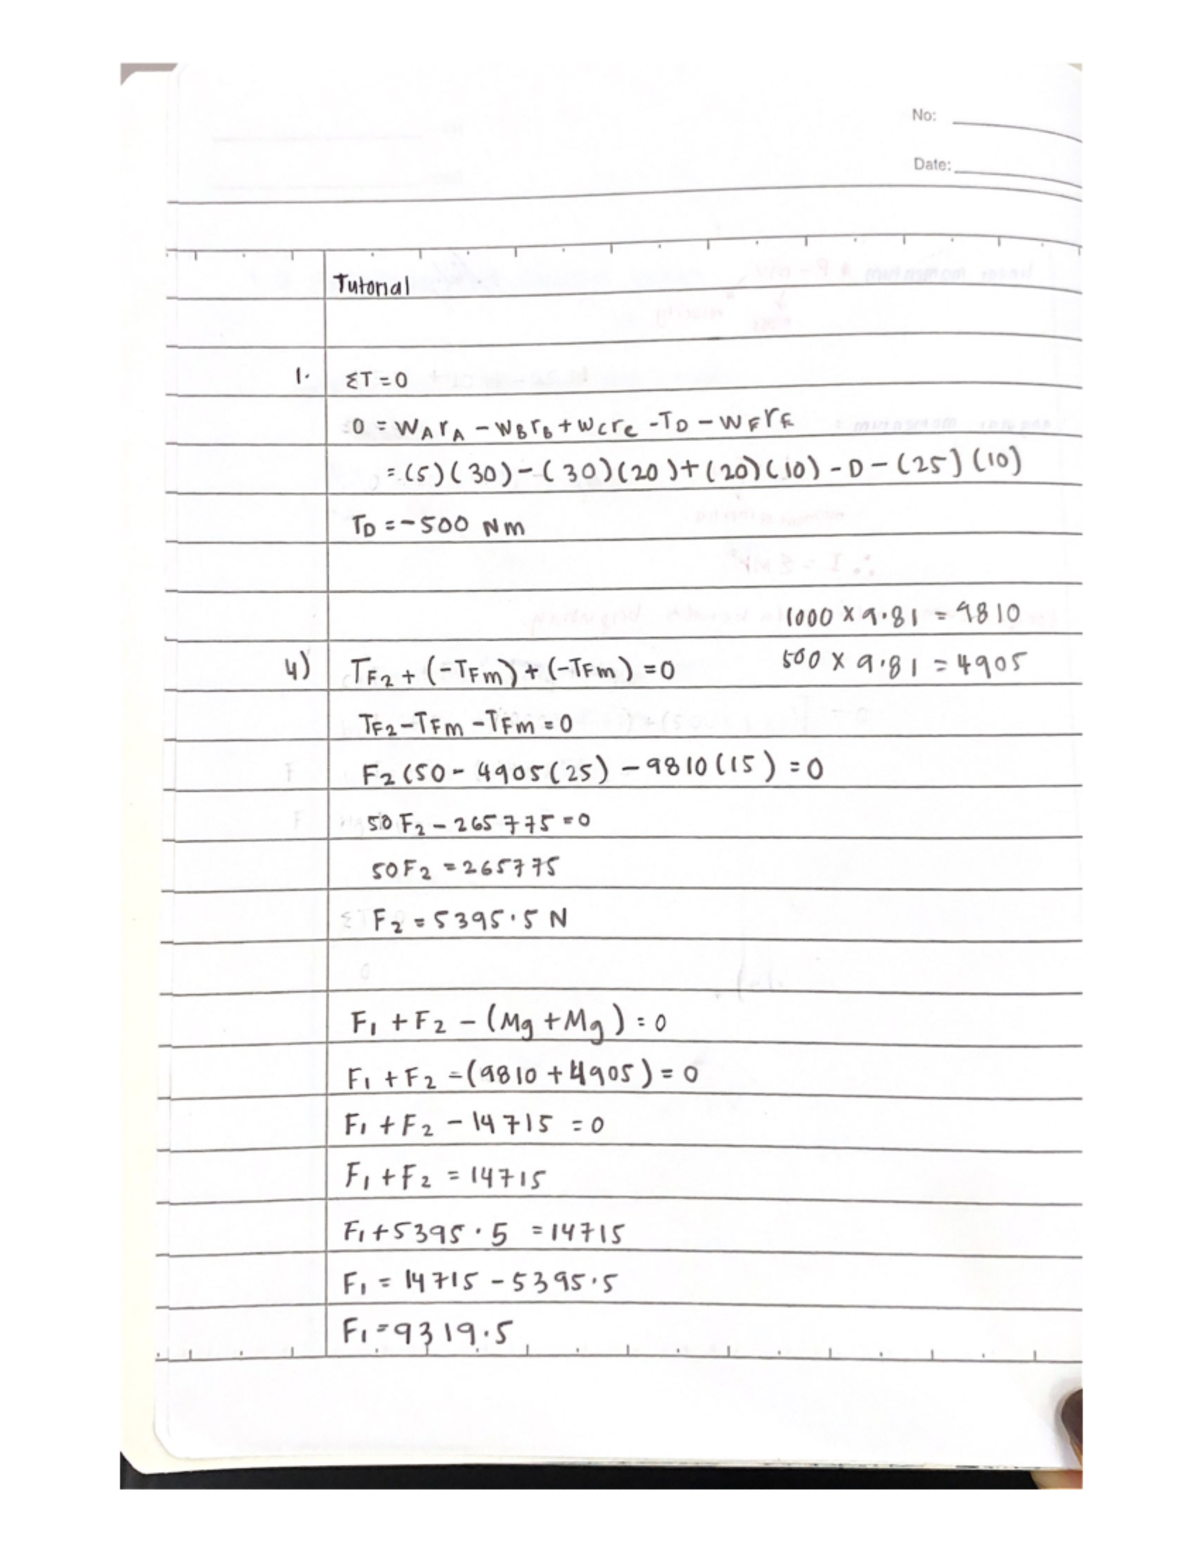 No:
Date:
Tutorial
1. ΣT = 0
0 = WArA - WBrB + WcrC - TD - WErE
= (5)(30) - (30)(20) + (20)(10) - D - (25)(10)
TD = -500 Nm
1000 x 9.81 = 9810
4) TF2 + (-TFm) + (-TFm) = 0 500 x 9.81 = 4905
TF2 - TFm - TFm = 0
F2 (50 - 4905(25) - 9810(15) = 0
50 F2 - 265775 = 0
50F2 = 265775
F2 = 5395.5 N
F1 + F2 - (Mg + Mg) = 0
F1 + F2 - (9810 + 4905) = 0
F1 + F2 - 14715 = 0
F1 + F2 = 14715
F1 + 5395.5 = 14715
F1 = 14715 - 5395.5
F1 = 9319.5